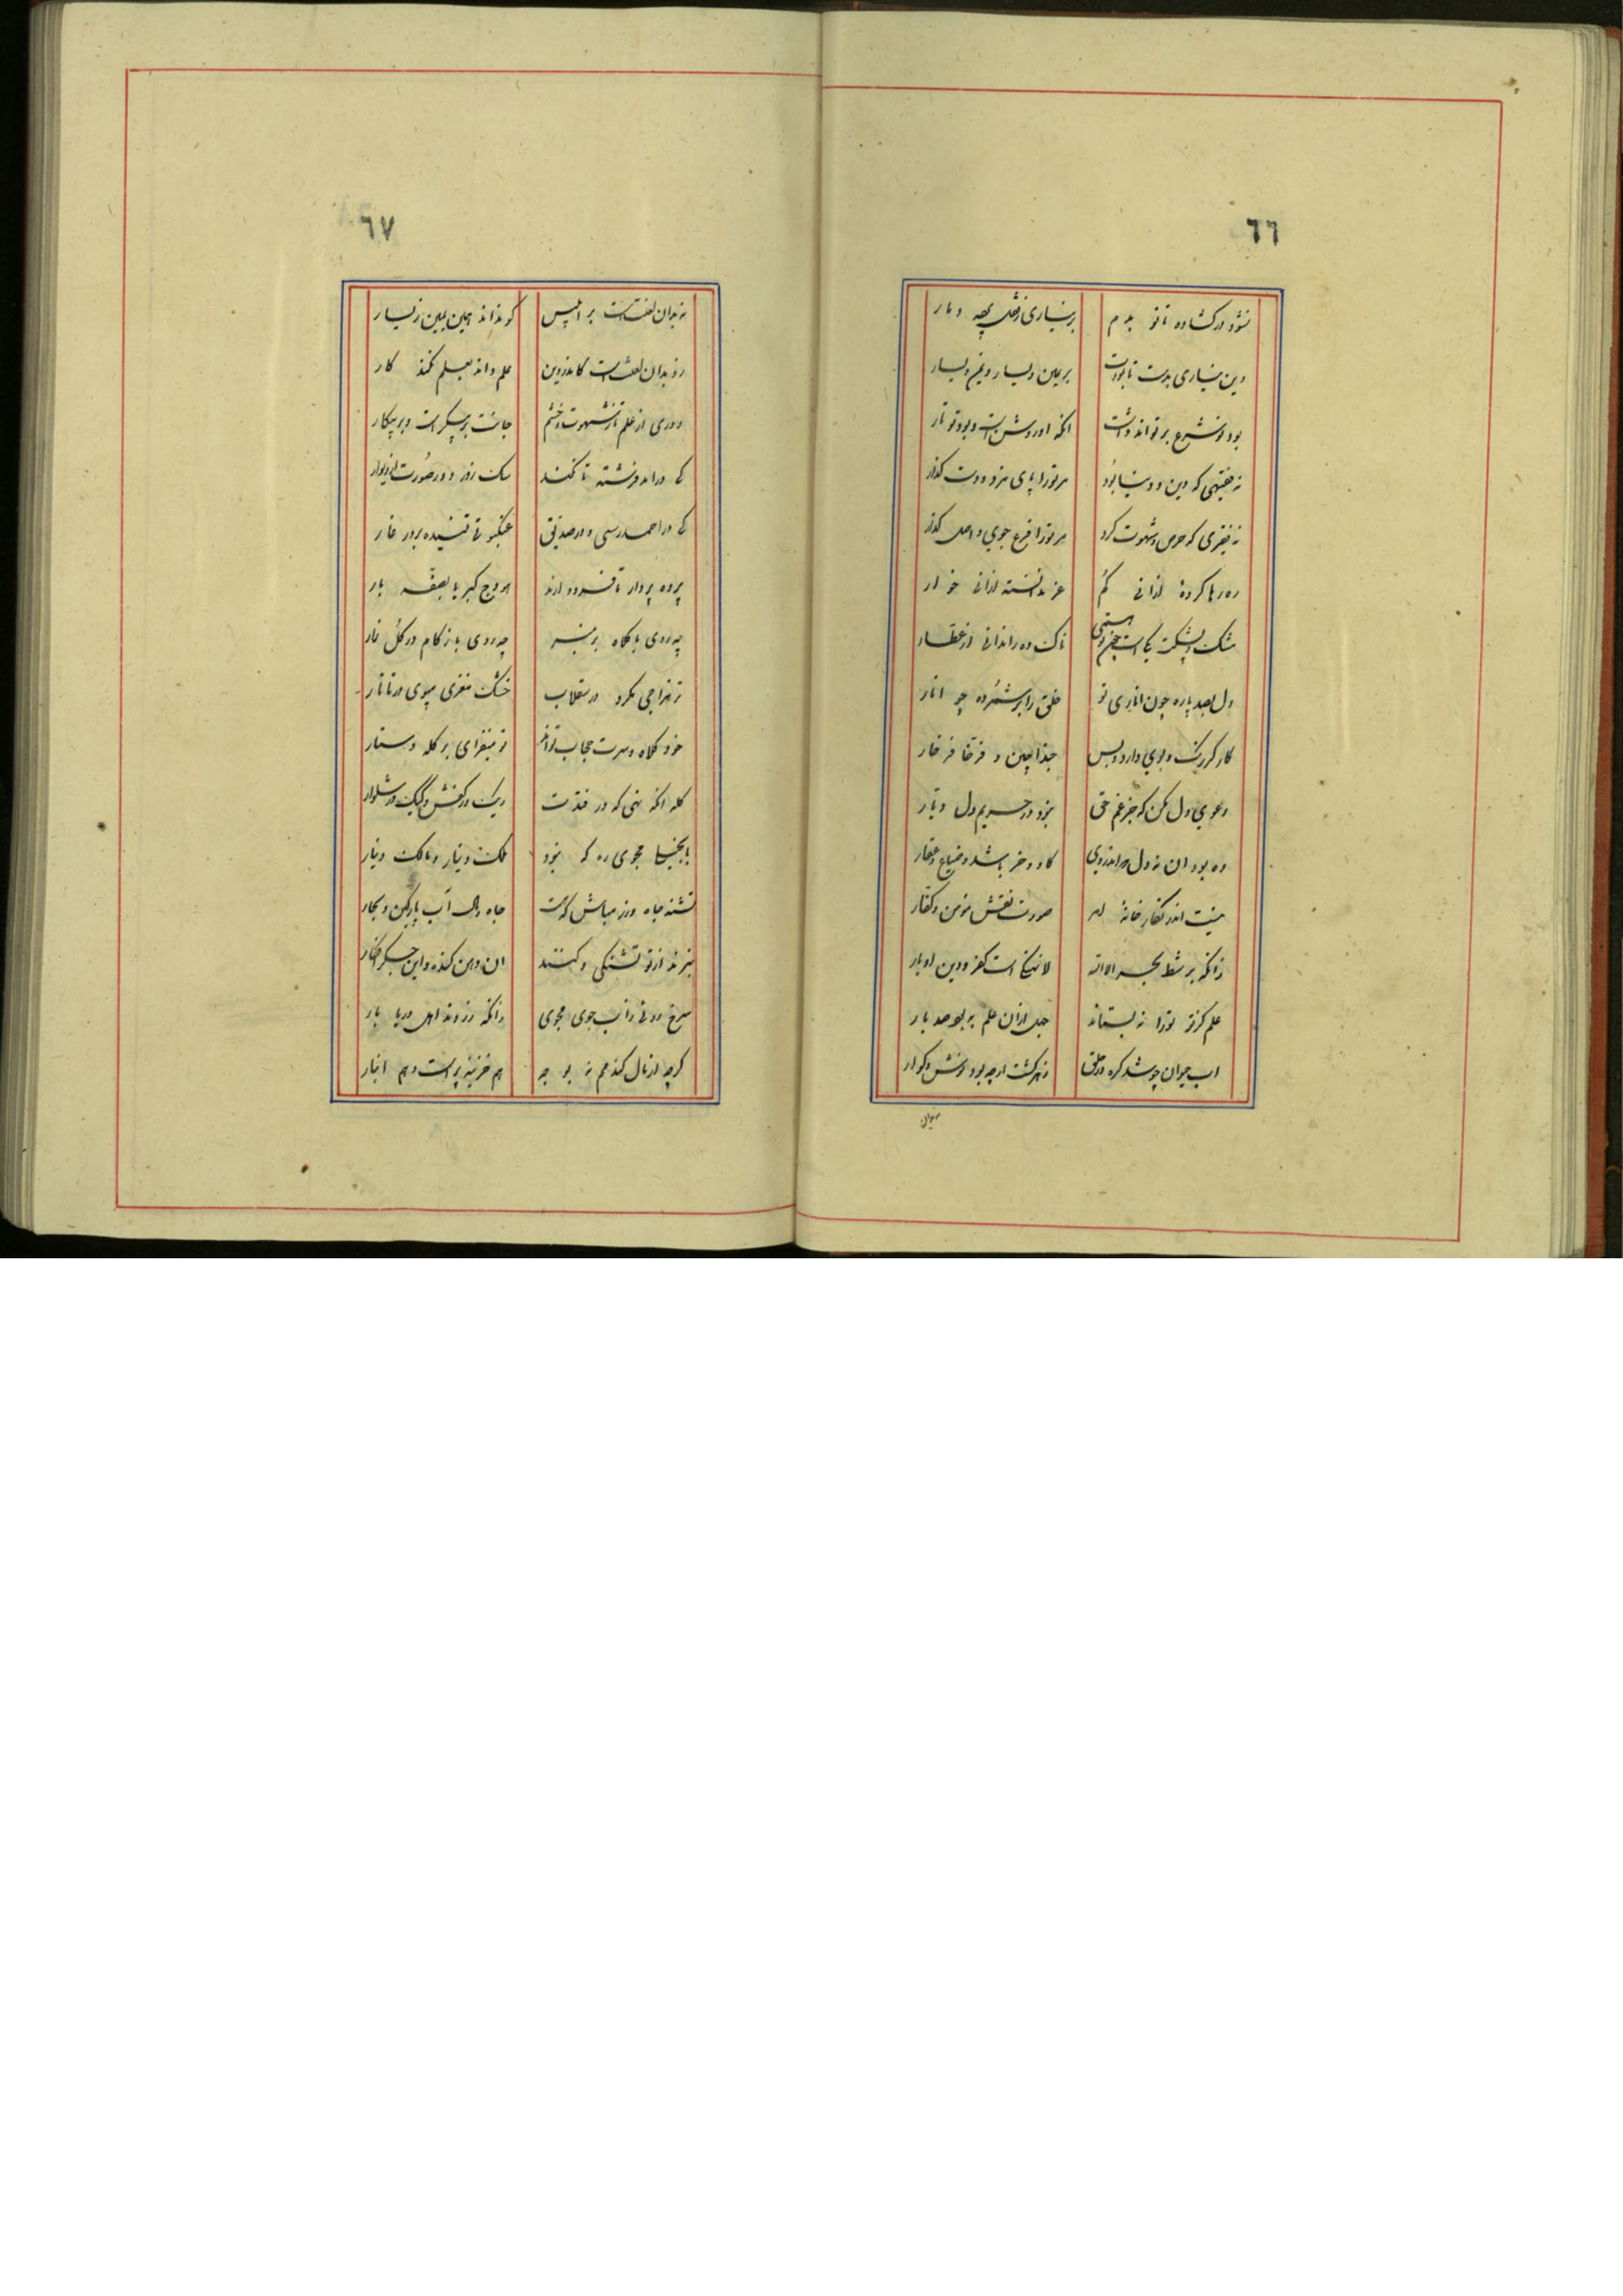 ٦٦
نشود در گشاده تا تو بدم
بر نیاری ز قفل پره دمار
دین نیاری بدست تا بودت
بر یمین و یسار و یم و یسار
بود تو شرع بر تواند داشت
انکه او روشن است و بود تو تار
نه فقیهی که دین و دنیا بود
مر ترا پای مزد و دست گذار
نه فقیری که حرص و شهوت کرد
مر ترا فرع جوی و اصل گذار
ره رها کرده ازانی گم
عز ندانسته ازانی خوار
مشک و پشکت یکی است چون تو همی
ناک ده را ندانی از عطار
دل بصد پاره چون اناری تو
خلق را برشمرده چو انار
کار کز رنگ و بوی دارد و بس
حبذا چین و فرخا فرخار
دعوی دل مکن که جز غم حق
نبود در حریم دل دیار
ده بود ان نه دل که اندر وی
گاو و خر باشد و ضیاع و عقار
نیست اندر نگارخانه امر
صورت نقش مومن و کفار
زانکه بر شط بحر الا الله
لا نهنگ است کفر و دین اوبار
علم کز تو ترا نه بستاند
جهل ازان علم به بود صد بار
اب حیوان چو شد گره در حلق
زهر گشت ارچه بود نوش و گوار
٦٧
نه بدان لعنت است بر ابلیس
کو نداند همین یمین ز یسار
زو بدان لعنت است کاندر دین
علم داند بعلم نکند کار
دوری از علم تا ز شهوت و خشم
جانت پر پیکر است و پر پیکار
کی دراید فرشته تا نکنی
سک ز در دور و صورت از دیوار
کی در احمد رسی و در صدیق
عنکبوتی تنیده بر در غار
پرده بردار تا فرود ارند
هودج کبریا بصفه بار
چه روی با کلاه بر منبر
چه روی با زکام در گلزار
تره مزاجی مکرد در سقلاب
خشک مغزی مپوی در تاتار
خود کلاه و سرت حجاب تو اند
تو میفزای بر کله دستار
کله انکه نهی که در فتدت
ریک در کفش و کیک در شلوار
با بخیلی مجوی ره که نبود
ملک دینار و مالک دینار
تشنه جاه و زر مباش که هست
جاه و زر آب پارکین و بحار
نبرند از تو تشنکی و کنند
ان دهن گنده و این جگر افکار
سرخ روئی ز آب جوی مجوی
زانکه زردند اهل دریا بار
گرچه از مال گندمم نه بو جه
هم خزینه پر است و هم انبار